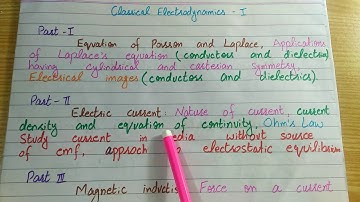 Classical Electrodynamics - I
Part - I
Equation of Poisson and Laplace, Applications
of Laplace's equation (conductors and dielectrics)
having cylindrical and cartesian symmetry,
Electrical images (conductors and dielectrics).
Part - II
Electric current: Nature of current, current
density and equation of continuity, Ohm's Law
Study current in without source
of emf, approach electrostatic equilibrium
Part III
Magnetic induction, Force on a current